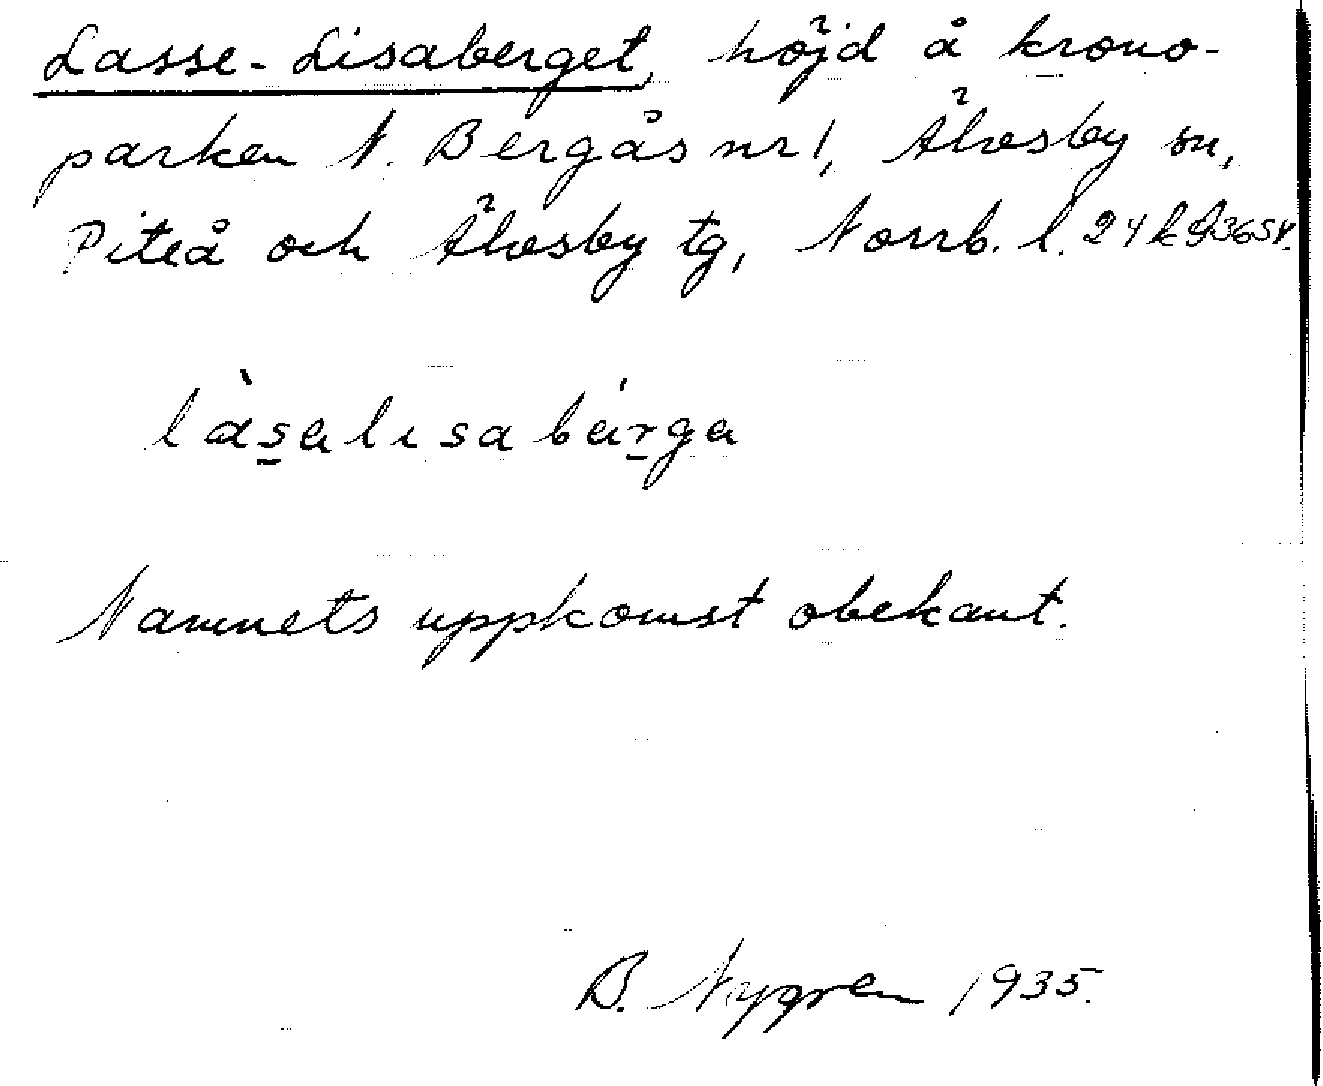 Lasse-Lisaberget, höjd å krono-
parken N. Bergås nr 1, Älvsby sn,
Piteå och Älvsby tg, Norrb. l.
Namnets uppkomst obekant.
B. Nygren 1935.